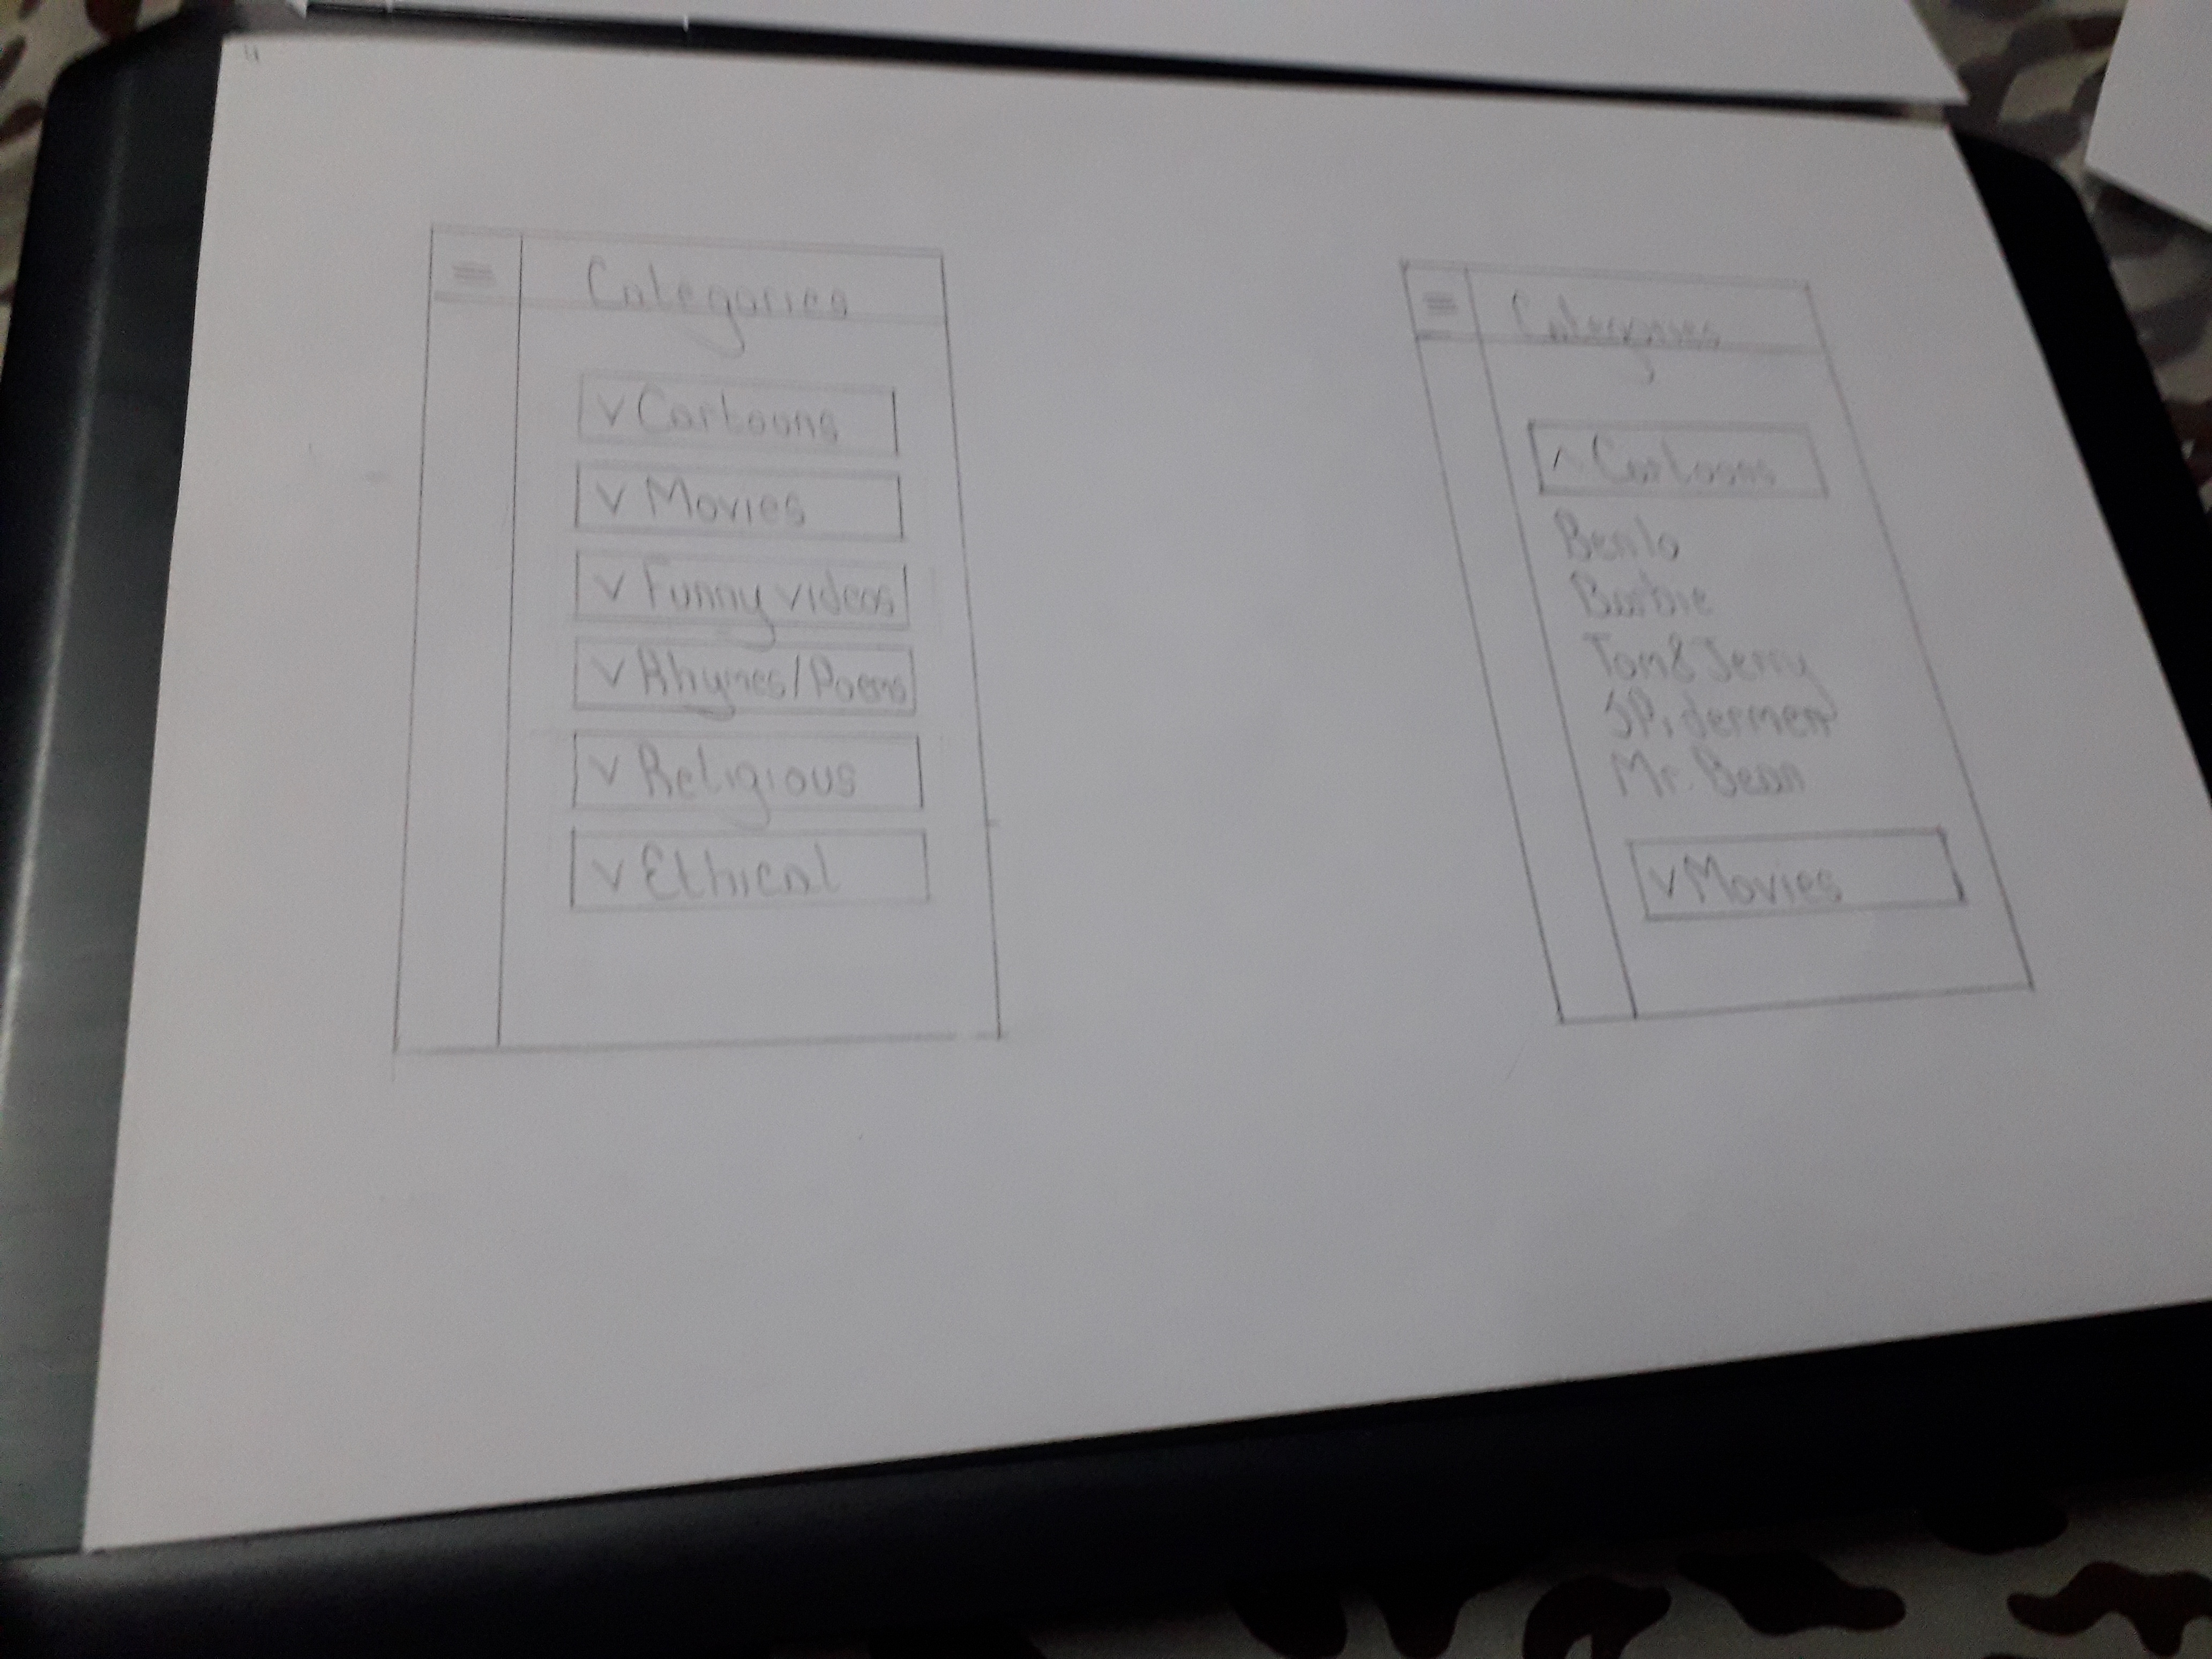 4
Categories
v Cartoons
v Movies
v Funny videos
v Rhymes/Poems
v Religious
v Ethical
Categories
^ Cartoons
Ben10
Barbie
Tom&Jerry
SPidermen
Mr. Bean
v Movies